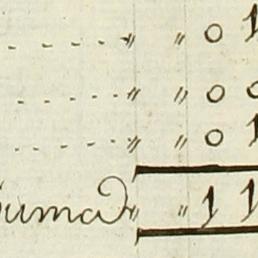 " " 0 1
" " 0 0
" " 0 1
Suma " " 1 1